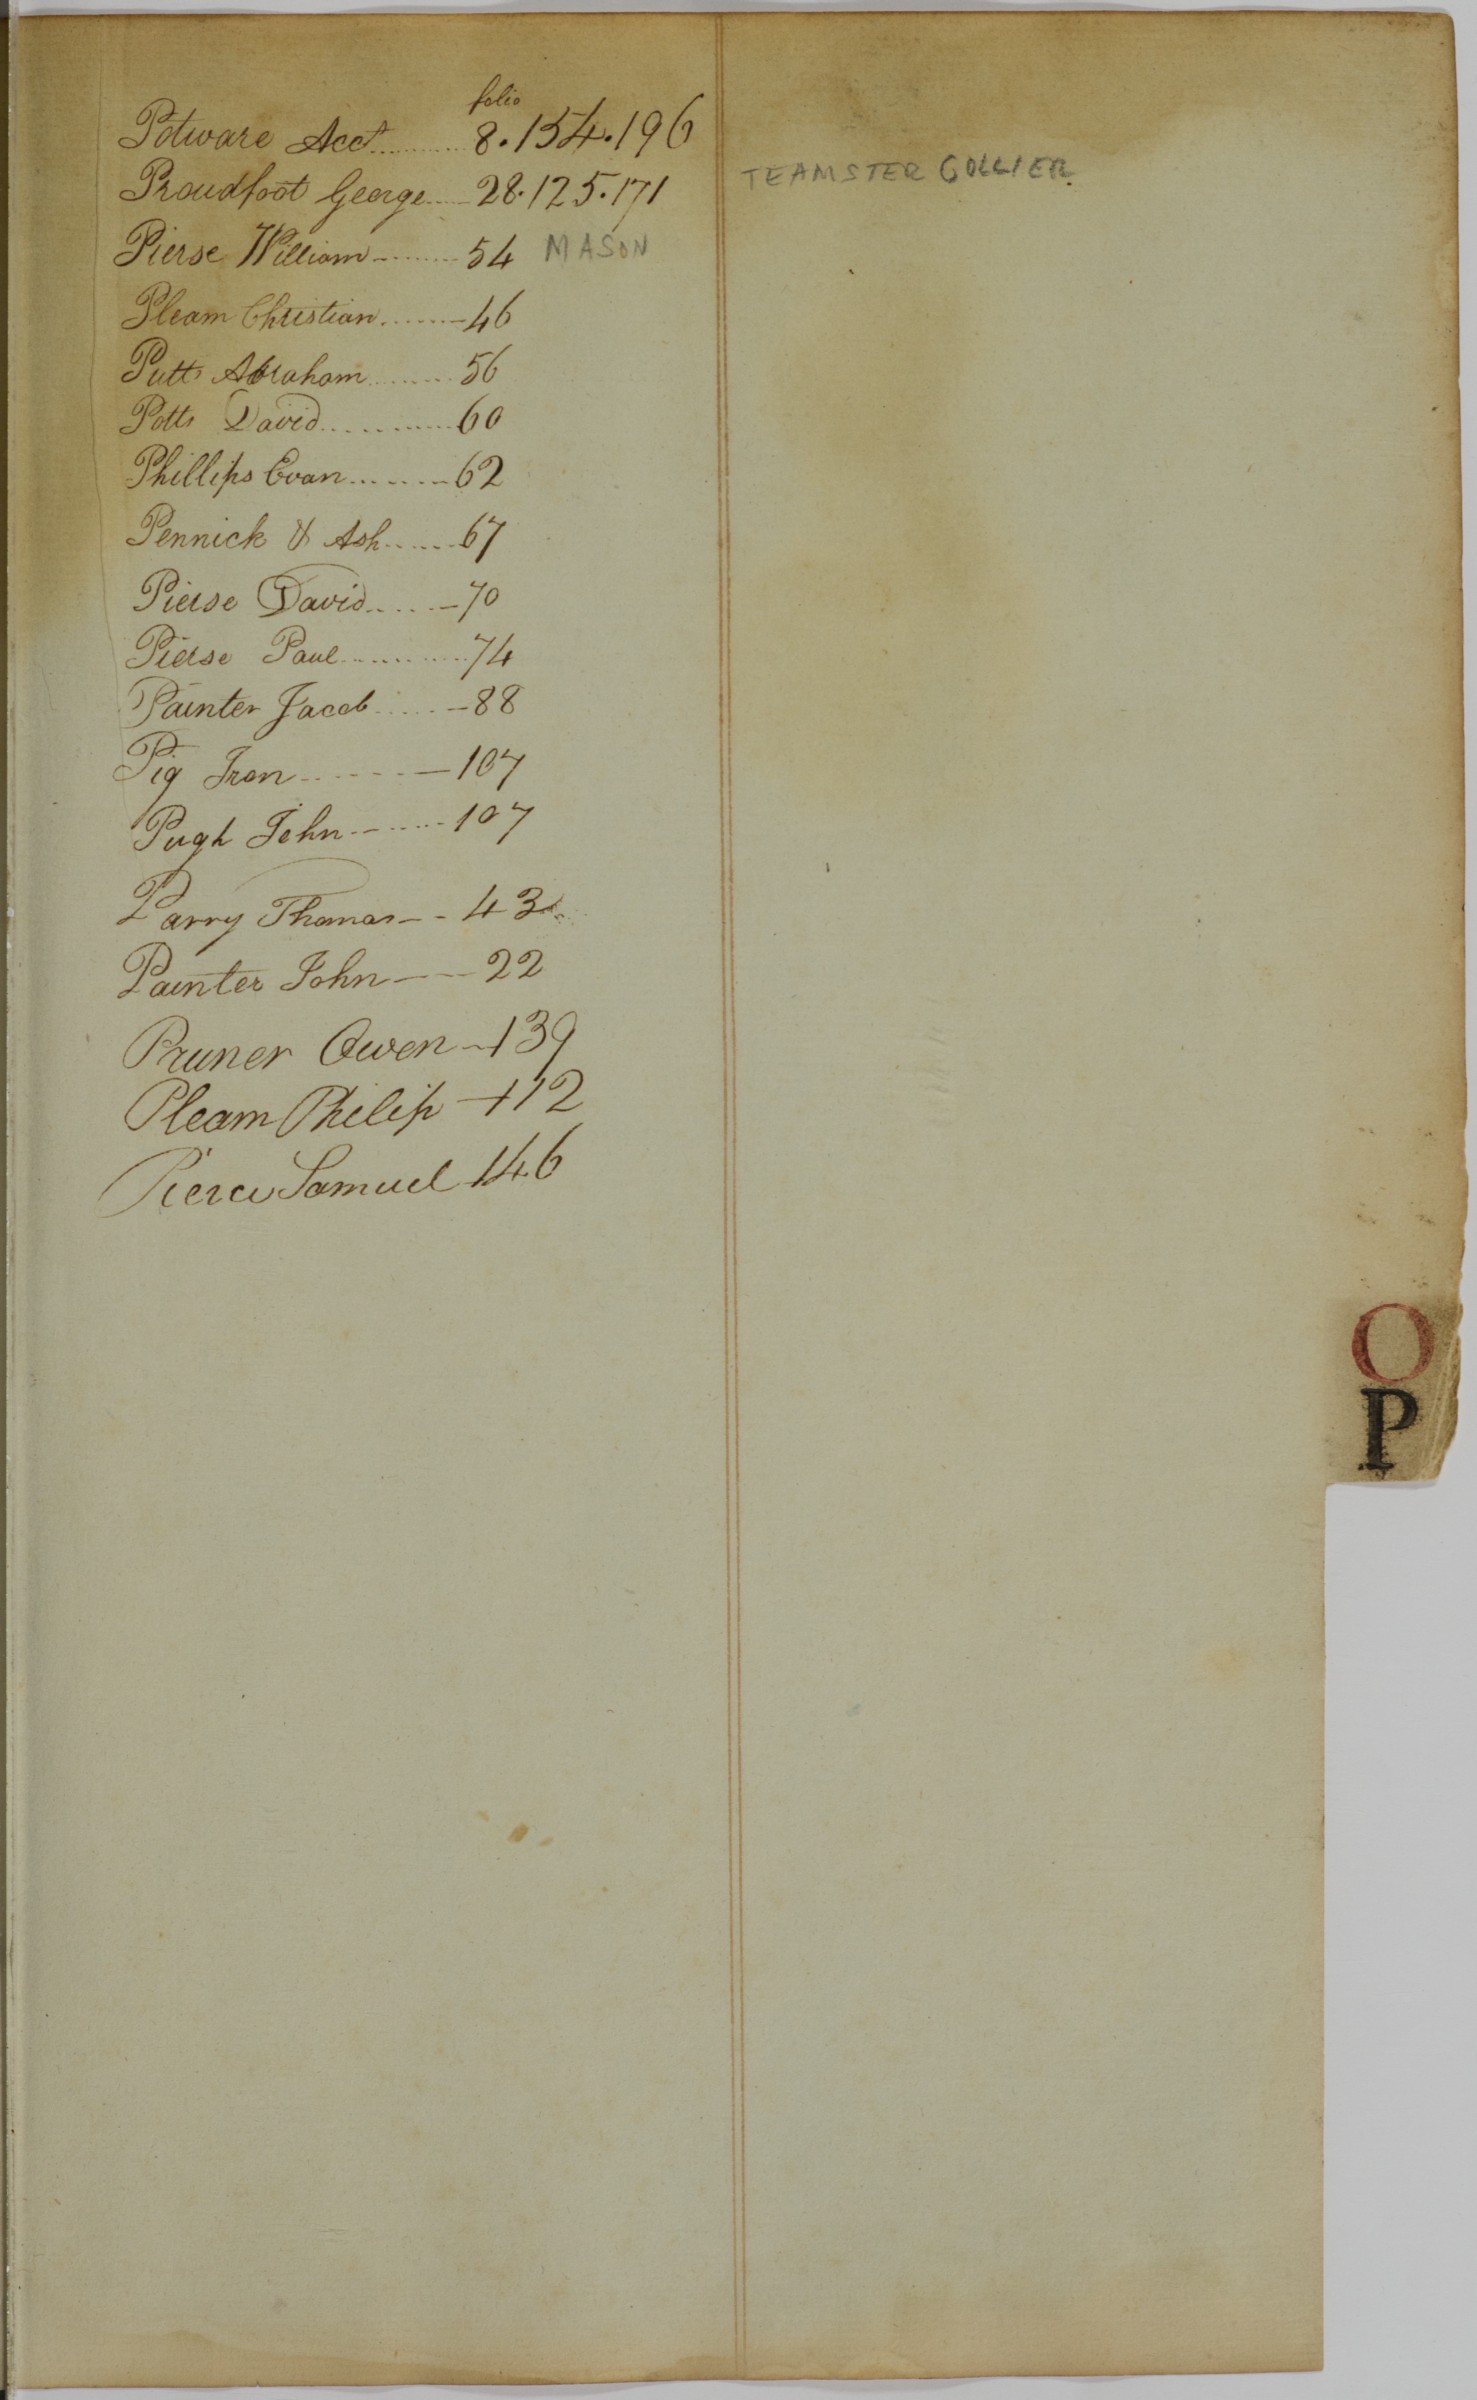 folio
Potware Acct ........... 8.154.196
Proudfoot George ..... 28.125.171 TEAMSTER COLLIER
Pierse William --------- 54 MASON
Pleam Christian ........ 46
Putts Abraham ......... 56
Potts David ............. 60
Phillips Evan .......... 62
Pennick & Ash ....... 67
Pierse David ....... 70
Pierse Paul ............ 74
Painter Jacob ...... 88
Pig Iron ........ 107
Pugh John ------- 107
Parry Thomas -- 43
Painter John --- 22
Pruner Owen - 139
Pleam Philip - 112
Pierce Samuel 146
O
P